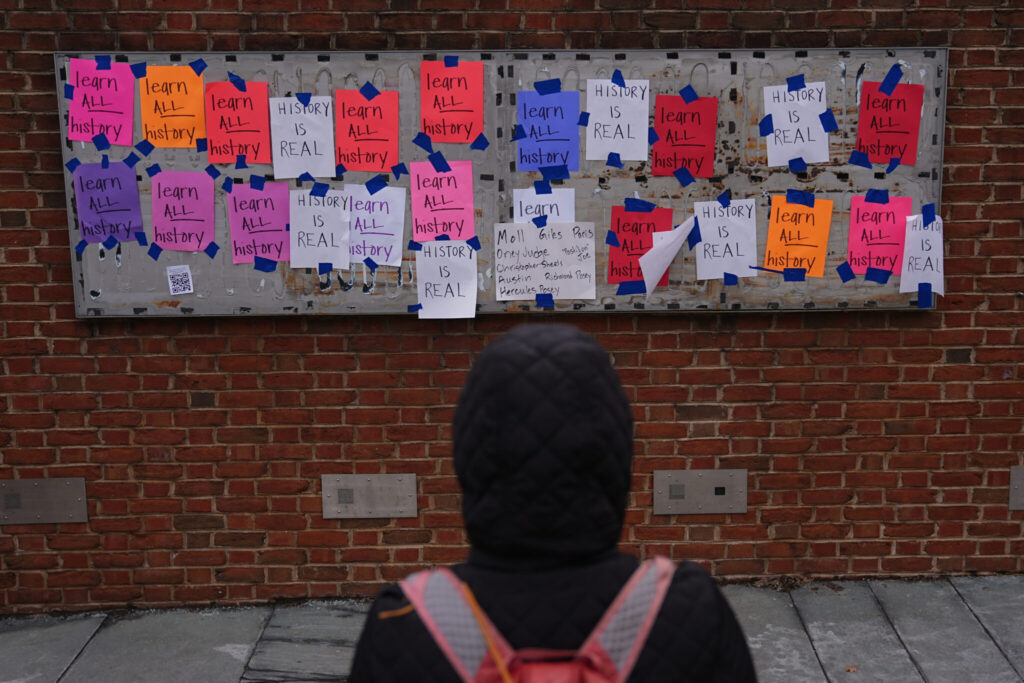 learn
ALL
history
learn
ALL
history
learn
ALL
history
HISTORY
IS
REAL
learn
ALL
history
learn
ALL
history
learn
ALL
history
HISTORY
IS
REAL
learn
ALL
history
HISTORY
IS
REAL
learn
ALL
history
learn
ALL
history
learn
ALL
history
learn
ALL
history
HISTORY
IS
REAL
learn
ALL
history
learn
ALL
history
HISTORY
IS
REAL
learn
Moll Giles Paris
Oney Judge
Christopher Sheels Joe
Austin Richmond Posey
Hercules Posey
learn
ALL
history
HISTORY
IS
REAL
learn
ALL
history
learn
ALL
history
HISTORY
IS
REAL